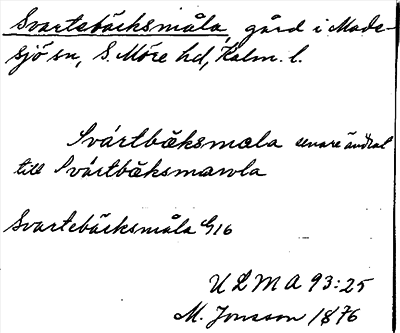 Svartebäcksmåla, gård i Made-
sjö sn, S. Möre hd, Kalm. l.
Svártbäksmala senare ändrat
till Svártbäksmawla
Svartebäcksmåla G16
ULMA 93:25
M. Jonsson 1876